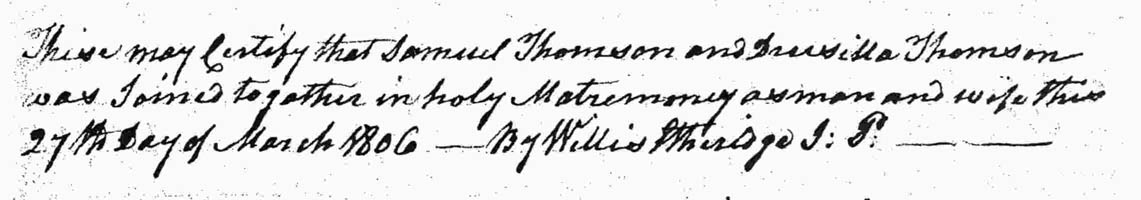 These may Certify that Samuel Thomson and Drusilla Thomson
was Joined together in holy Matremoney as man and wife this
27th Day of March 1806 — By Willis Etheridge J: P. — —